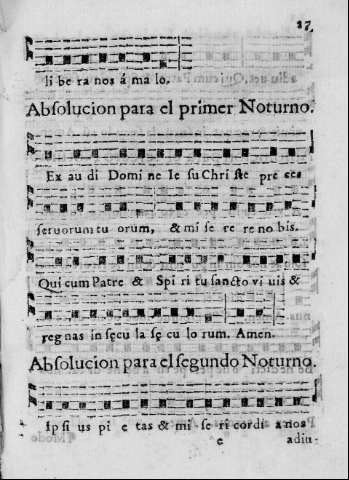 27
li be ra nos á ma lo.
Absolucion para el primer Noturno.
Ex au di Domi ne Ie su Chri ste pre ces
seruorum tu orum, & mi se re re no bis.
Qui cum Patre & Spi ri tu sancto vi uis &
reg nas in sęcu la sę cu lo rum. Amen.
Absolucion para el segundo Noturno.
Ip si us pi e tas & mi se ri cordi a nos
e adiu-